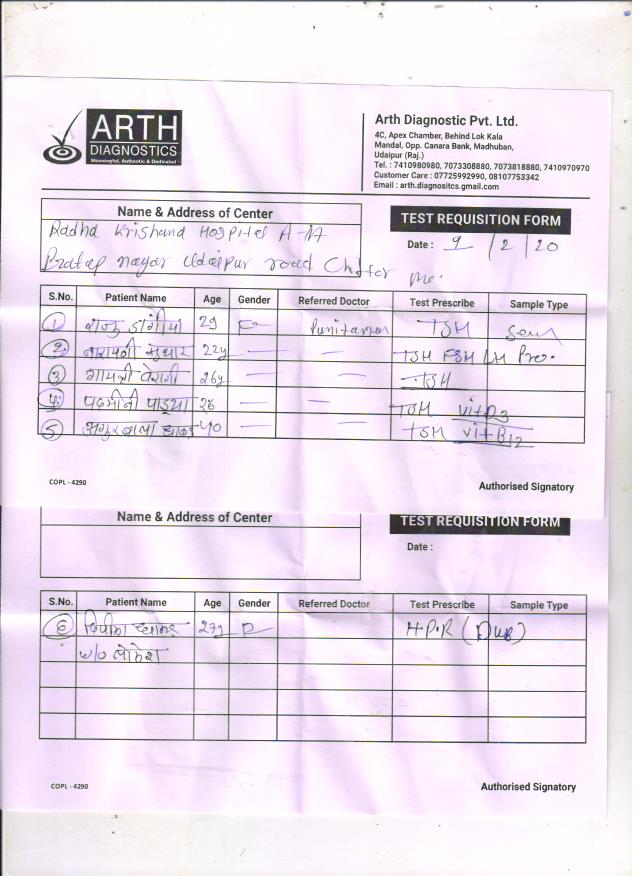 ARTH
DIAGNOSTICS
Meaningful, Authentic & Dedicated
Arth Diagnostic Pvt. Ltd.
4C, Apex Chamber, Behind Lok Kala
Mandal, Opp. Canara Bank, Madhuban,
Udaipur (Raj.)
Tel. : 7410980980, 7073308880, 7073818880, 7410970970
Customer Care : 07725992990, 08107753342
Email : arth.diagnositcs.gmail.com
Name & Address of Center
TEST REQUISITION FORM
Radha Krishana Hospital
Date : 9/2/20
Pratap nagar Udaipur road
S.No. Patient Name Age Gender Referred Doctor Test Prescribe Sample Type
1 29 F TSH
2 22y — — TSH FSH LH
3 गायत्री 26y — — TSH
4 28 — — TSH vit D3
5 40 — — TSH vit B12
COPL - 4290
Authorised Signatory
Name & Address of Center
TEST REQUISITION FORM
Date :
S.No. Patient Name Age Gender Referred Doctor Test Prescribe Sample Type
6 27y F H.P.R
w/o लोकेश
COPL - 4290
Authorised Signatory